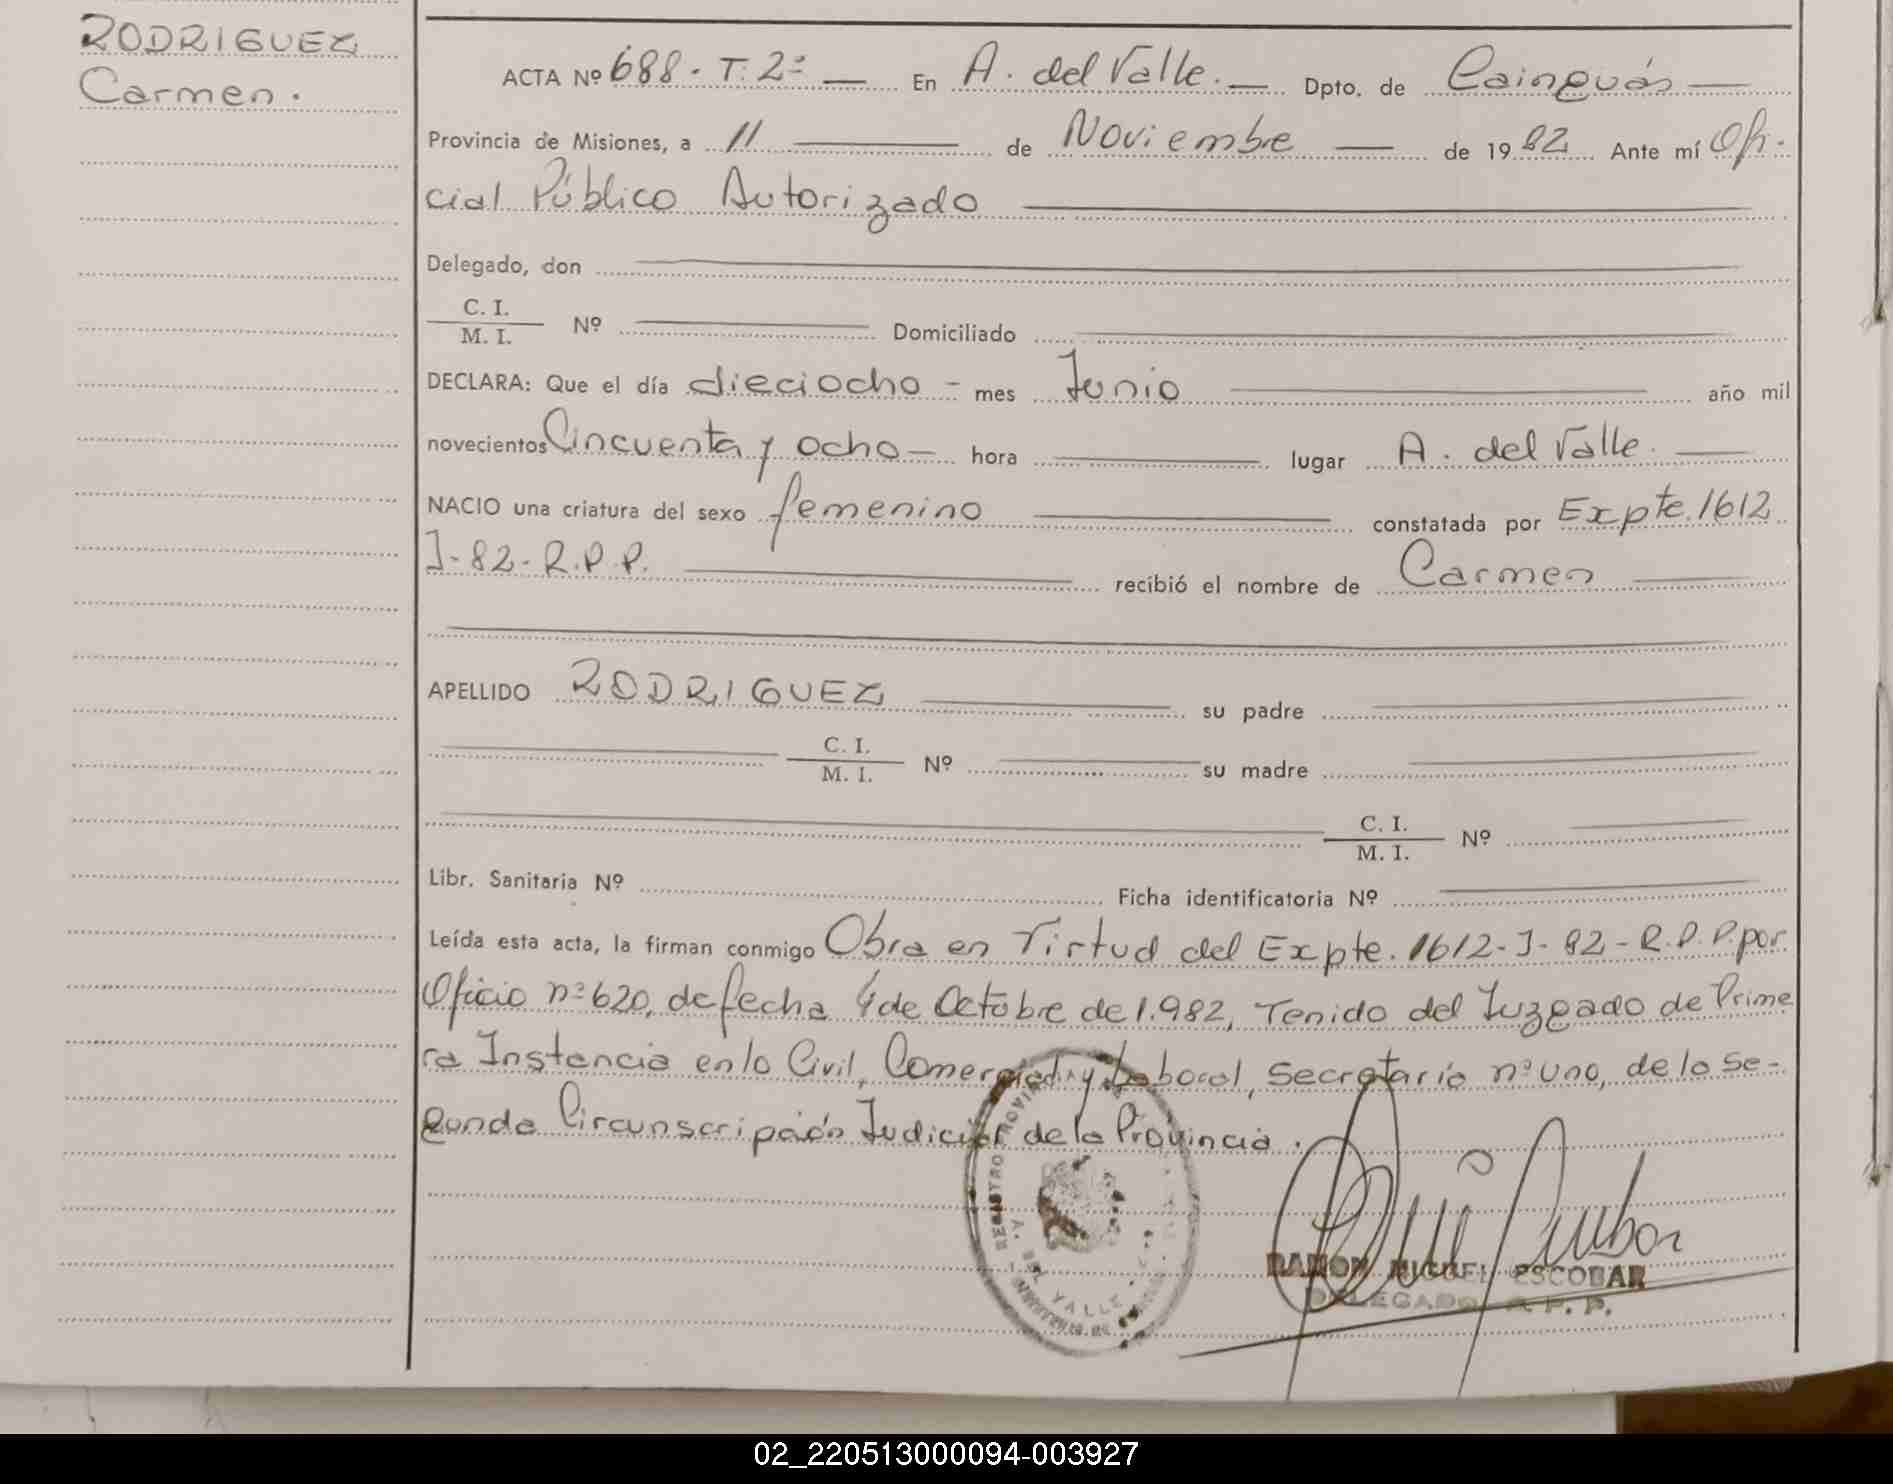 RODRIGUEZ
Carmen.
ACTA Nº 688 - T: 2º — En A. del Valle. — Dpto. de Cainguás —
Provincia de Misiones, a 11 — de Noviembre — de 1982 Ante mí Ofi-
cial Público Autorizado
Delegado, don
C. I.
M. I. Nº Domiciliado
DECLARA: Que el día dieciocho - mes Junio año mil
novecientos Cincuenta y ocho — hora lugar A. del Valle.
NACIO una criatura del sexo femenino constatada por Expte. 1612
J-82-R.P.P. recibió el nombre de Carmen
APELLIDO RODRIGUEZ su padre
C. I.
M. I. Nº su madre
C. I.
M. I. Nº
Libr. Sanitaria Nº Ficha identificatoria Nº
Leída esta acta, la firman conmigo Obra en Virtud del Expte. 1612-J-82-R.P.P. por
Oficio nº 620, de fecha 4 de Octubre de 1.982, Venido del Juzgado de Prime
ra Instancia en lo Civil, Comercial y Laboral, Secretaria nº uno, de la Se-
gunda Circunscripción Judicial de la Provincia.
REGISTRO PROVINCIAL
A. DEL VALLE
RAMON MIGUEL ESCOBAR
DELEGADO R. P. P.
02_220513000094-003927